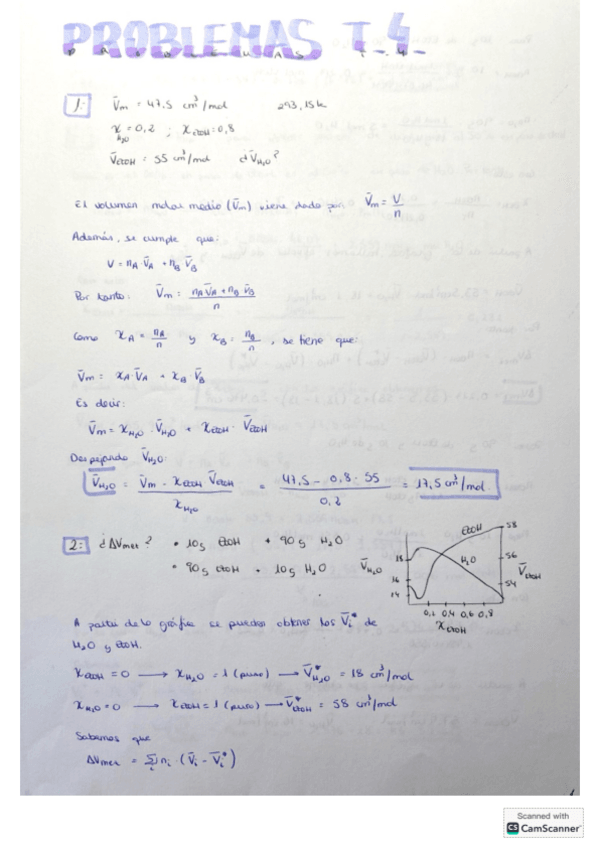 PROBLEMAS T.4
PROBLEMAS T-4-
1: V̄m = 47,5 cm³/mol 293,15k
χH₂O = 0,2 ; χEtOH = 0,8
V̄EtOH = 55 cm³/mol ¿V̄H₂O?
El volumen molar medio (V̄m) viene dado por V̄m = V/n
Además, se cumple que:
V = nA·V̄A + nB·V̄B
Por tanto: V̄m = (nA·V̄A + nB·V̄B)/n
Como χA = nA/n y χB = nB/n, se tiene que:
V̄m = χA·V̄A + χB·V̄B
Es decir:
V̄m = χH₂O · V̄H₂O + χEtOH · V̄EtOH
Despejando V̄H₂O:
V̄H₂O = (V̄m - χEtOH V̄EtOH)/χH₂O = (47,5 - 0,8 · 55)/0,2 = 17,5 cm³/mol.
2: ¿ΔVmez? • 10g EtOH + 90g H₂O
• 90g EtOH + 10g H₂O
EtOH
H₂O
V̄H₂O
18
16
14
58
56
54
V̄EtOH
0,2 0,4 0,6 0,8
χEtOH
A partir de la gráfica se pueden obtener los V̄i* de
H₂O y EtOH.
χEtOH = 0 → χH₂O = 1 (puro) → V̄*H₂O = 18 cm³/mol
χH₂O = 0 → χEtOH = 1 (puro) → V̄*EtOH = 58 cm³/mol
Sabemos que
ΔVmez = Σi ni · (V̄i - V̄i*)
Scanned with
CS CamScanner